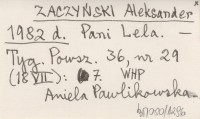 ZACZYŃSKI Aleksander
1982 d. Pani Lela. —
Tyg. Powsz. 36, nr 29
(18 VII): 7. WHP
Aniela Pawlikowska.